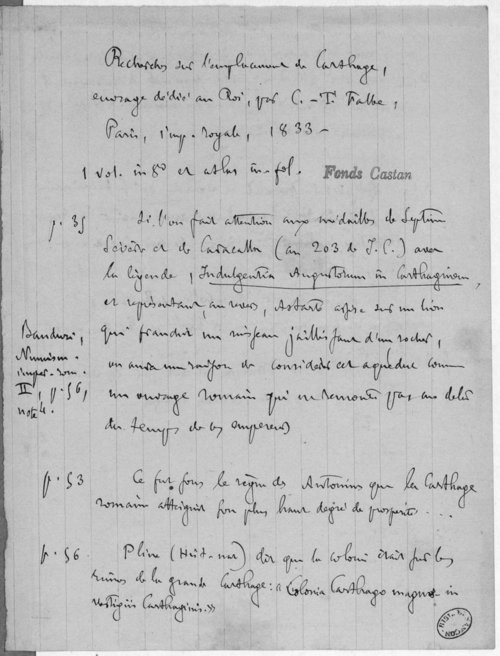 Recherches sur l'emplacement de Carthage,
ouvrage dédié au Roi, par C.-T. Falbe,
Paris, imp. royale, 1833 -
1 vol. in 8° et atlas in-fol.
Fonds Castan
p. 35 Si l'on fait attention aux médailles de Septime
Sévère et de Caracalla (an 203 de J.C.) avec
la légende, Indulgentia Augustorum in Carthaginem,
et représentant, au revers, Astarté assise sur un lion
qui franchit un ruisseau jaillissant d'un rocher,
on aura une raison de considérer cet aqueduc comme
un ouvrage romain qui ne remonte pas au delà
du temps de ces empereurs
Banduri,
Numism.
imper. rom.
II, p. 56,
note 4.
p. 53 Ce fut sous le règne des Antonins que la Carthage
romaine atteignit son plus haut degré de prospérité ....
p. 56 Pline (Hist. nat) dit que la colonie était sur les
ruines de la grande Carthage: « Colonia Carthago magnæ in
vestigiis Carthaginis.»